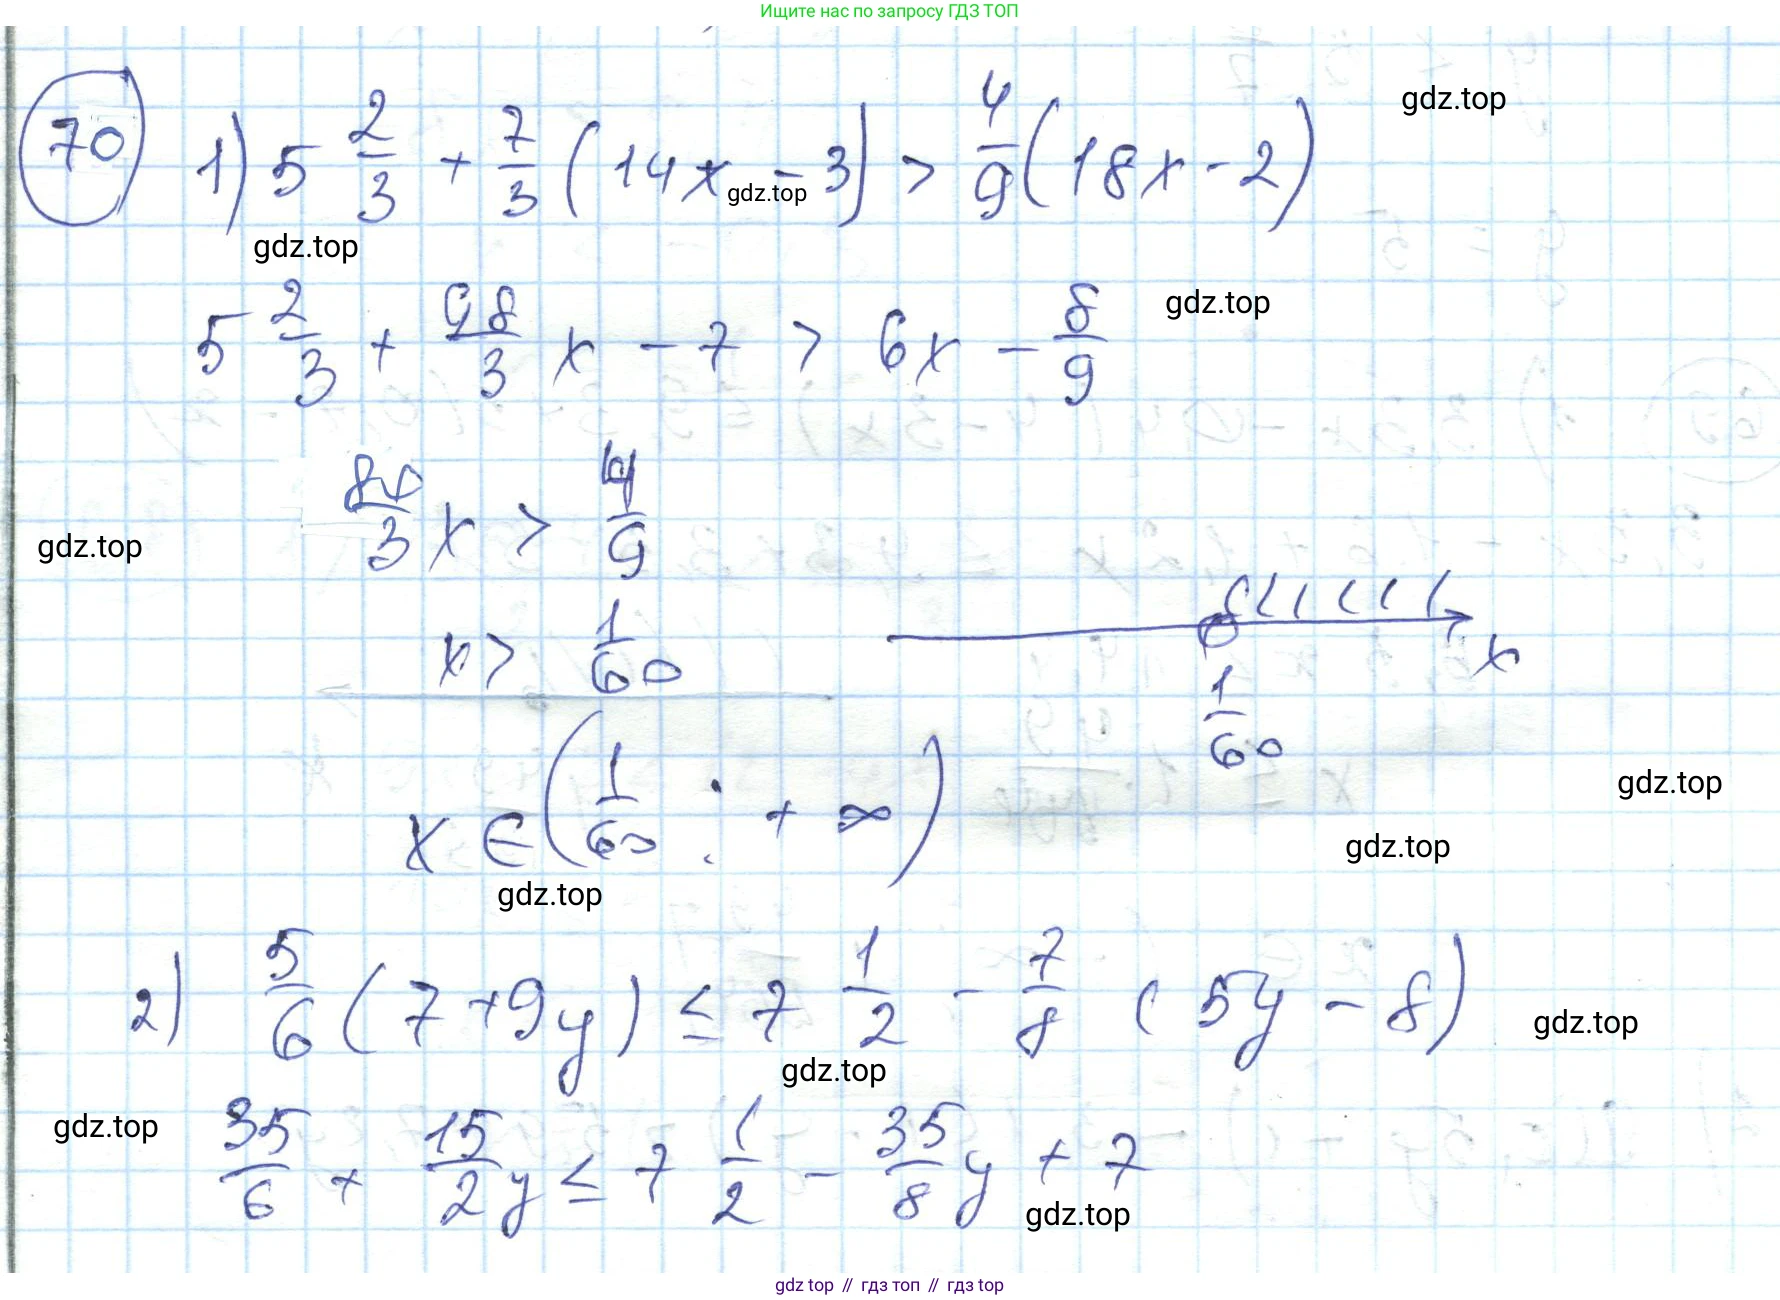 Ищите нас по запросу ГДЗ ТОП
70 1) 5 2/3 + 7/3 (14x - 3) > 4/9 (18x - 2)
gdz.top
gdz.top
gdz.top
5 2/3 + 98/3 x - 7 > 6x - 8/9
gdz.top
80/3 x > 4/9
gdz.top
x > 1/60
x
1/60
x ∈ (1/60 ; + ∞)
gdz.top
gdz.top
gdz.top
2) 5/6 (7 + 9y) ≤ 7 1/2 - 7/8 (5y - 8)
gdz.top
gdz.top
35/6 + 15/2 y ≤ 7 1/2 - 35/8 y + 7
gdz.top
gdz.top
gdz top // гдз топ // гдз top